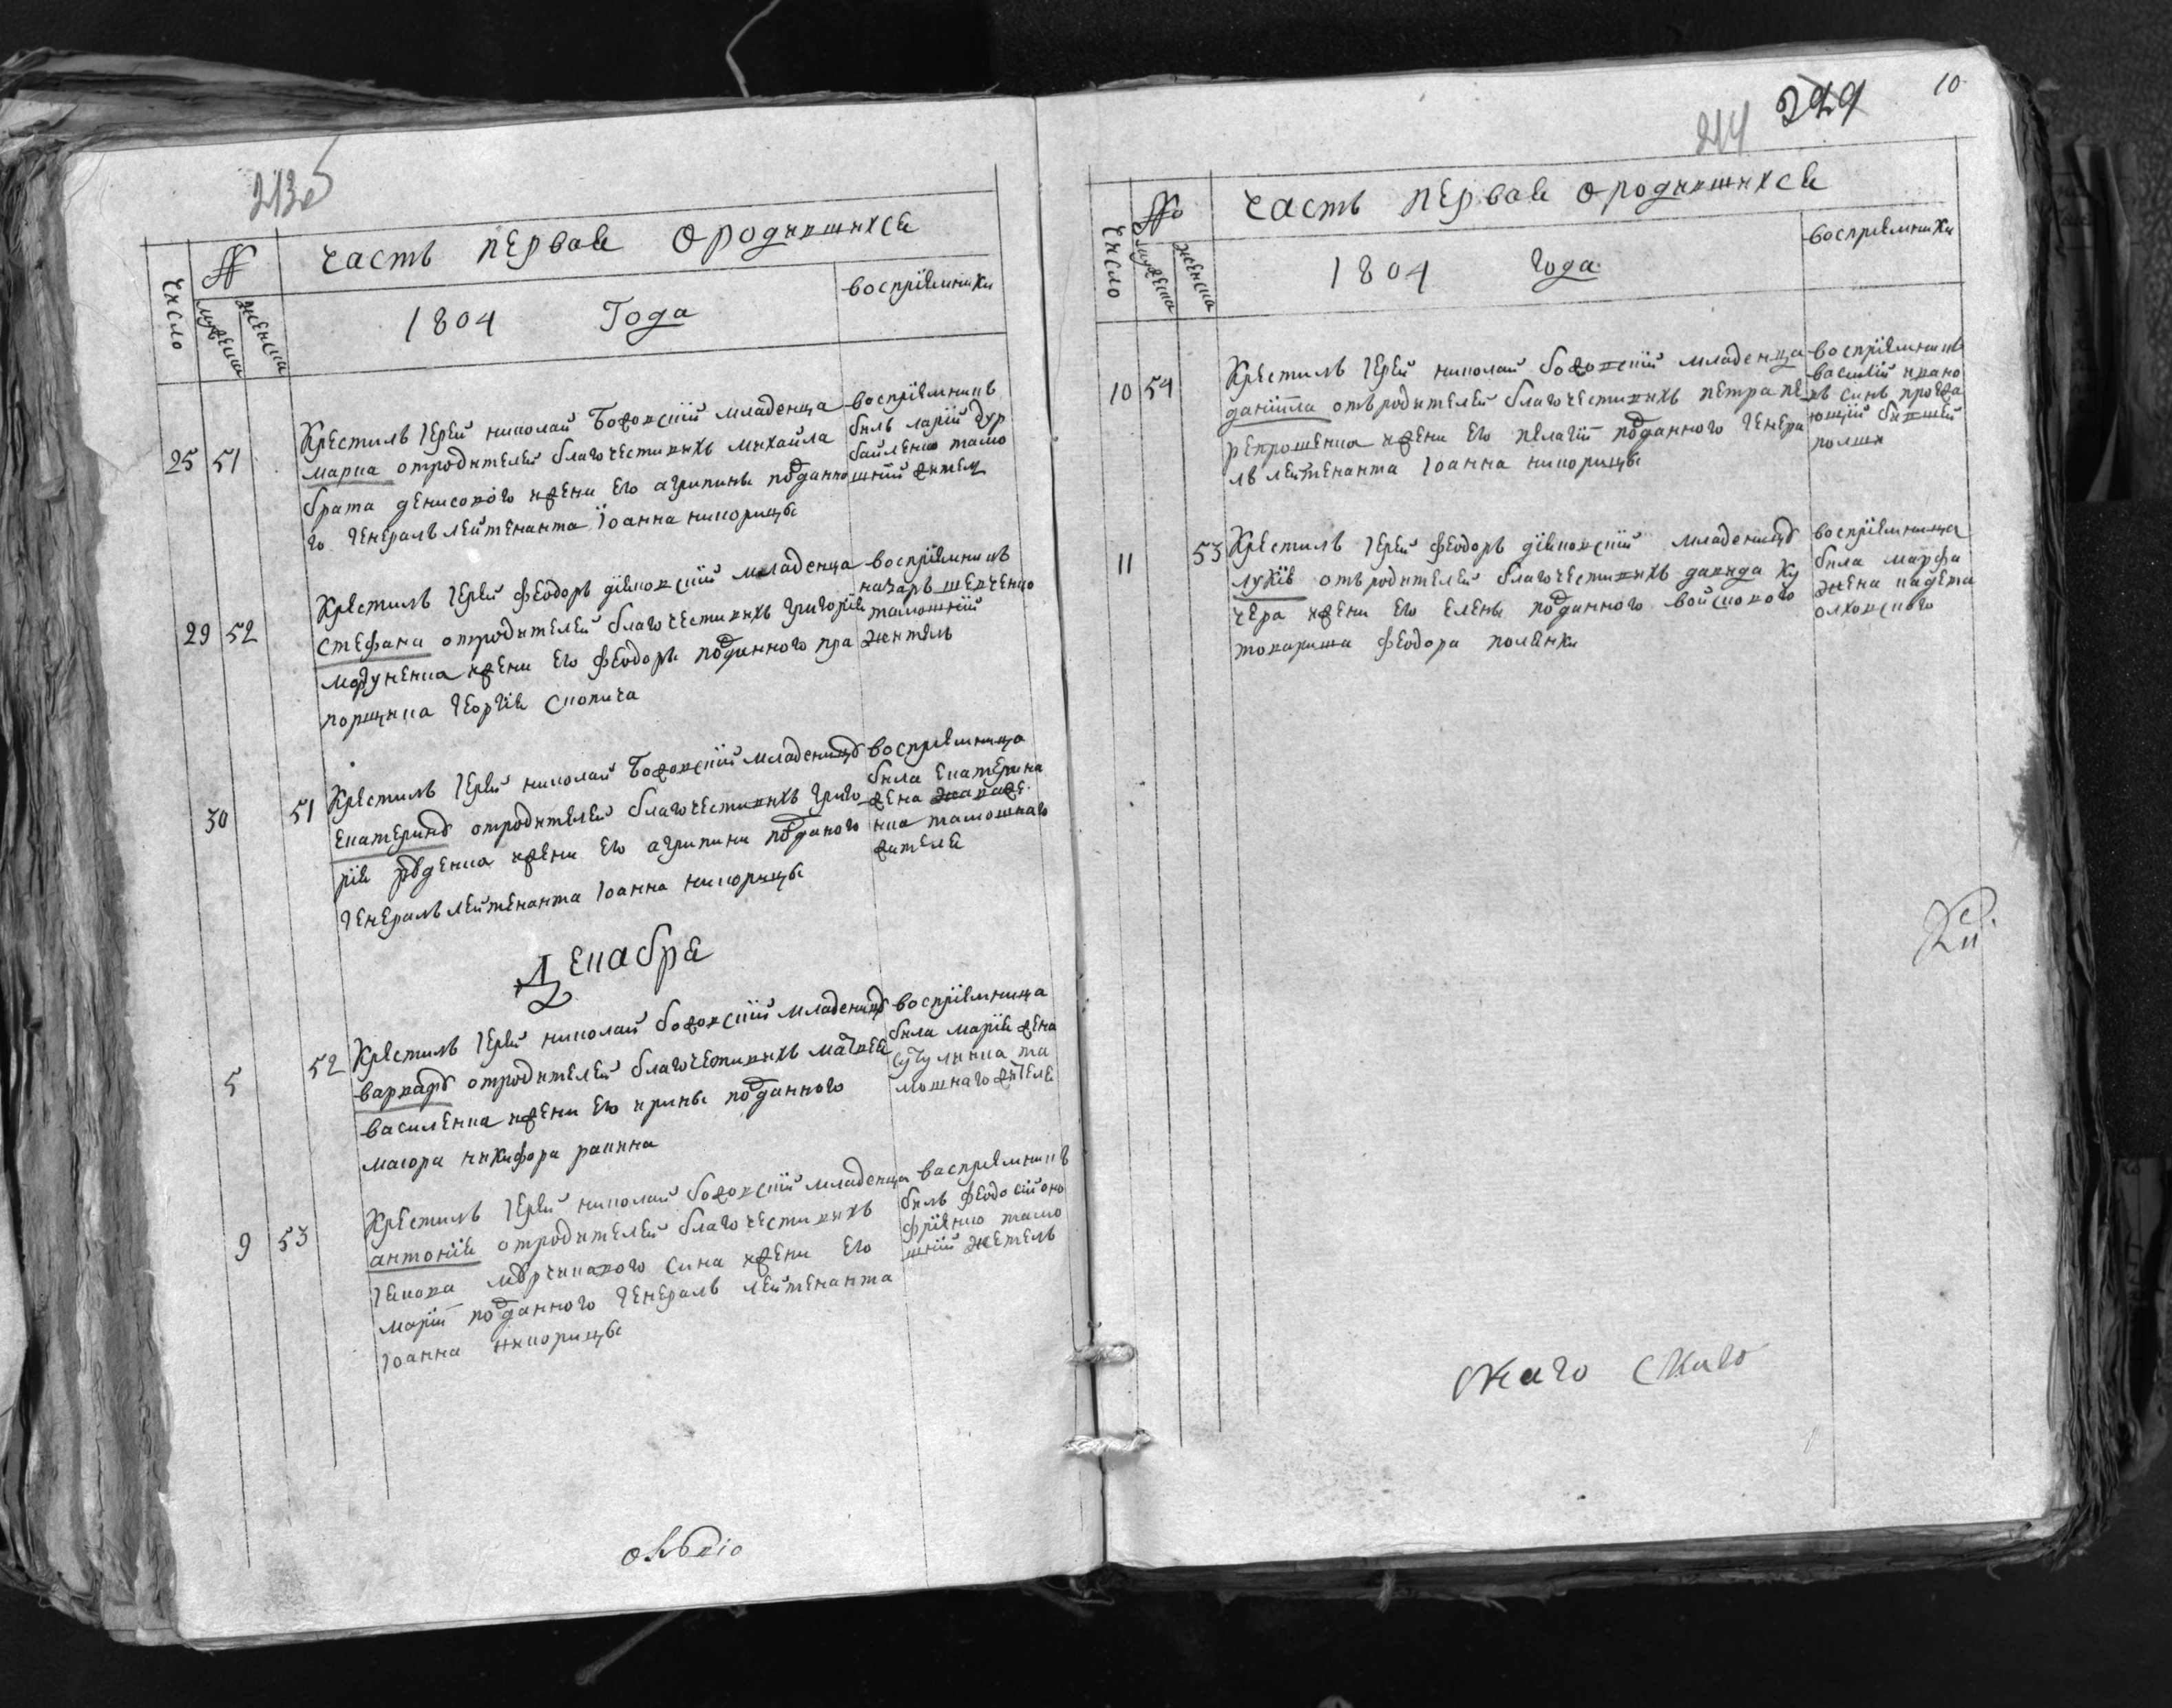 213об
Число
№
мужеска
женска
Часть первая О родившихся
1804 Года
воспріемники
25 51
Крестилъ Іерей николай Божовскій младенца
марка отродителей благочестивихъ михайла
брата денисового ижени его агрипины подданно
го Генералъ лейтенанта Іоанна никорицы
воспріемникъ
билъ ларій дур
байленко тамо
шній житель
29 52
Крестилъ Іерей феодоръ дѣяковскій младенца
Стефана отродителей благочестивихъ григорія
ижени его феодоры подданного пра
порщика Георгія
воспріемникъ
назаръ шевченко
тамошній
жителъ
30 51
Крестилъ Іерей николай Божовскій младеницу
Екатерину отродителей благочестивихъ григо
рія ижени его агрипини подданого
Генералъ лейтенанта Іоанна никорицы
воспріемница
била Екатерина
жена
нка тамошнаго
жителя
Декабря
5 52
Крестилъ Іерей николай божовскій младеницу
варвару отродителей благочестивихъ матвея
василенка ижени его ирины подданного
маіора никифора ракина
воспріемница
била марія жена
та
мошнаго жителя
9 53
Крестилъ Іерей николай божовскій младенца
антонія отродителей благочестивихъ
Іакова сина ижени его
маріи подданного Генералъ лейтенанта
Іоанна никорицы
воспріемникъ
билъ феодосій оно
фріенко тамо
шній жетель
214 229 10
Число
№
мужеска
женска
Часть Первая О родившихся
1804 Года
воспріемники
10 54
Крестилъ Іерей николай божовскій младенца
даніила отъ родителей благочестивихъ петра пе
репрошенка ижени его пелагіи подданного Генера
лъ лейтенанта Іоанна никорицы
воспріемникъ
василій ивано
въ синъ прожва
ющій бившей
полши
11 53
Крестилъ Іерей феодоръ дѣяковскій младеницу
лукію отъ родителей благочестивихъ давида ку
чера ижени его елены подданного войскового
товариша феодора полянки
воспріемница
била марфа
жена кадета
олховского